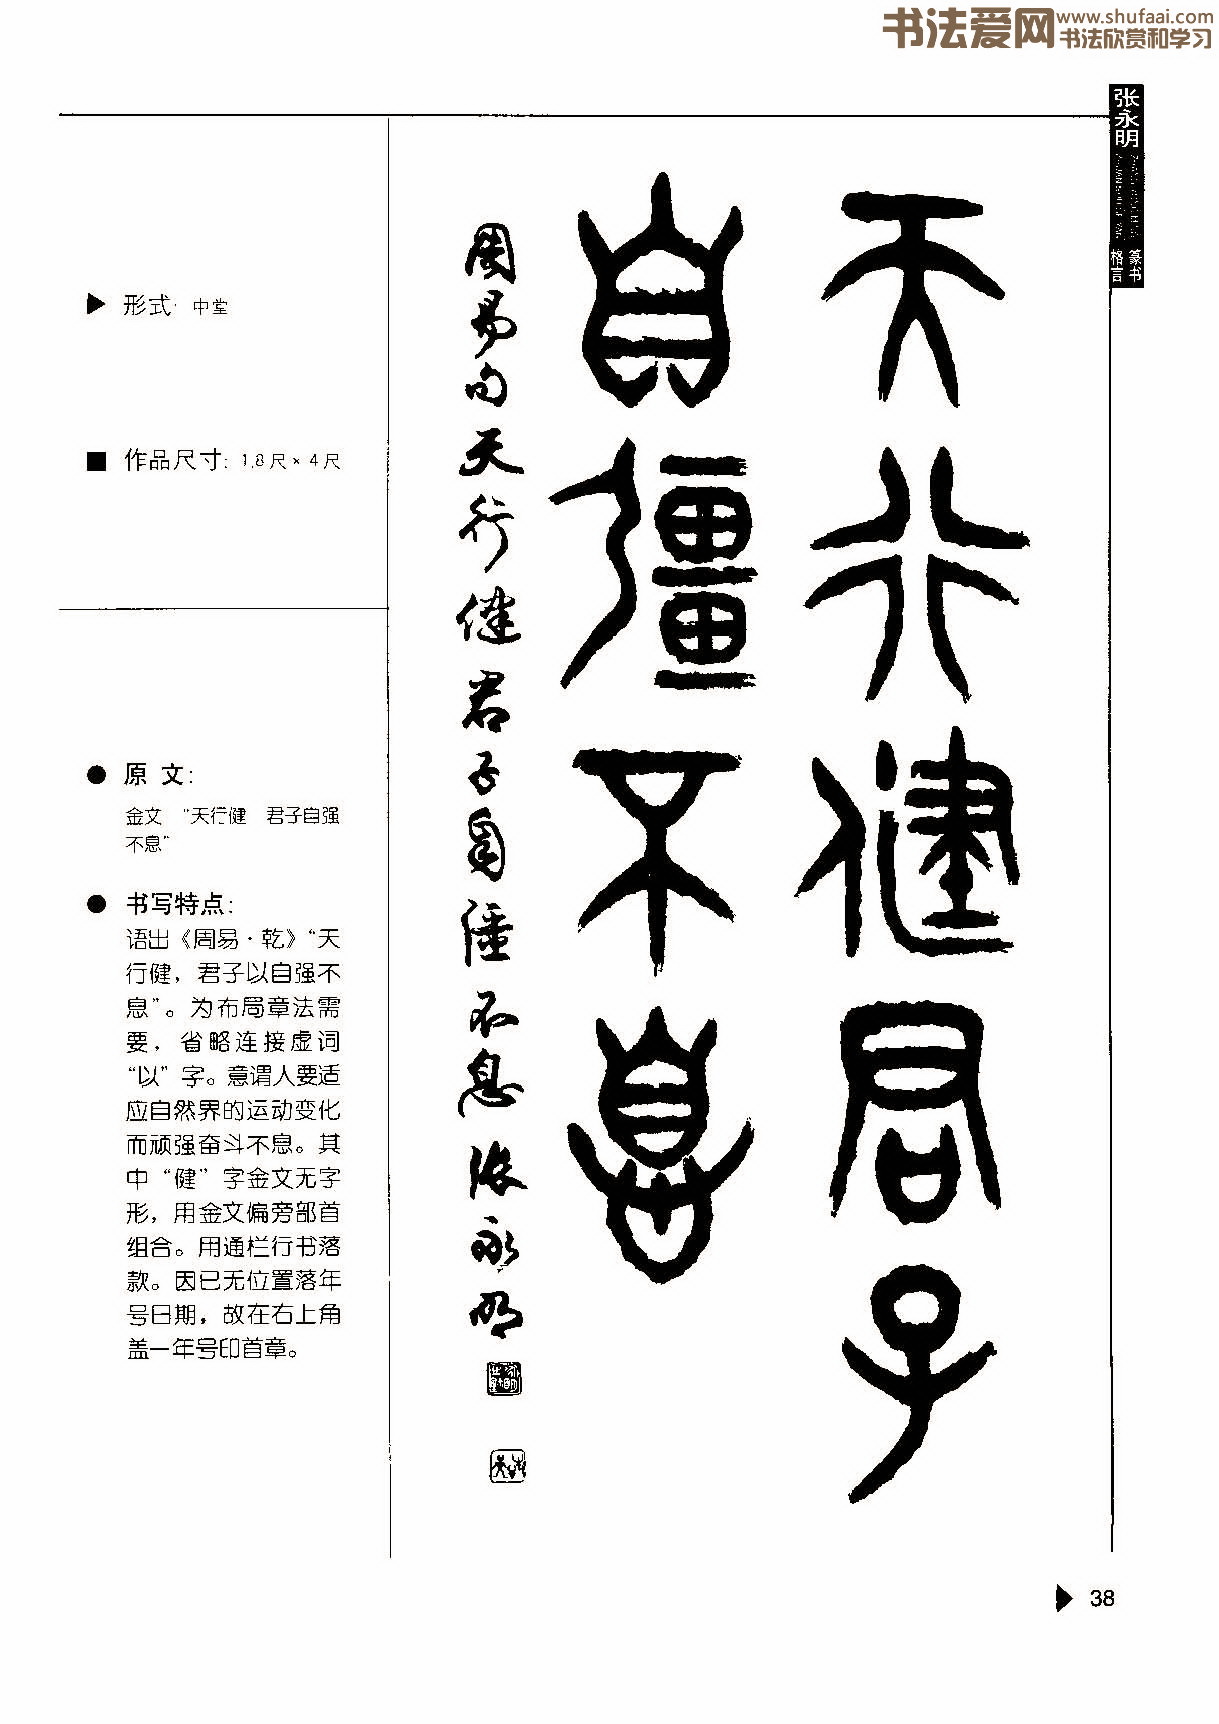 书法爱网 www.shufaai.com
书法欣赏和学习
张永明
篆书
格言
▶ 形式: 中堂
■ 作品尺寸: 1.8尺×4尺
● 原 文:
金文 “天行健 君子自强
不息”
● 书写特点:
语出《周易·乾》“天
行健，君子以自强不
息”。为布局章法需
要，省略连接虚词
“以”字。意谓人要适
应自然界的运动变化
而顽强奋斗不息。其
中“健”字金文无字
形，用金文偏旁部首
组合。用通栏行书落
款。因已无位置落年
号日期，故在右上角
盖一年号印首章。
天行健君子
自彊不息
周易句天行健君子自强不息张永明
▶ 38